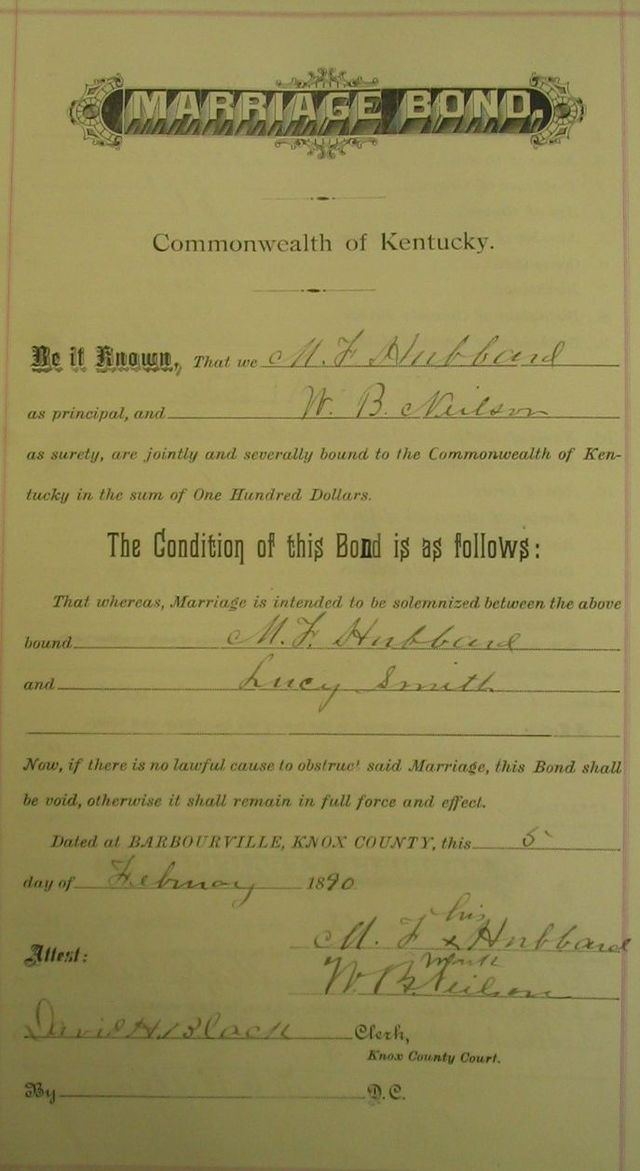 MARRIAGE BOND.
Commonwealth of Kentucky.
Be it Known, That we M. F. Hubbard
as principal, and W. B. Neilson
as surety, are jointly and severally bound to the Commonwealth of Ken-
tucky in the sum of One Hundred Dollars.
The Condition of this Bond is as follows:
That whereas, Marriage is intended to be solemnized between the above
bound M. F. Hubbard
and Lucy Smith
Now, if there is no lawful cause to obstruct said Marriage, this Bond shall
be void, otherwise it shall remain in full force and effect.
Dated at BARBOURVILLE, KNOX COUNTY, this 5
day of February 1890
his
M. F. x Hubbard
Attest:
mark
W. B. Neilson
David H. Black Clerk,
Knox County Court.
By D.C.